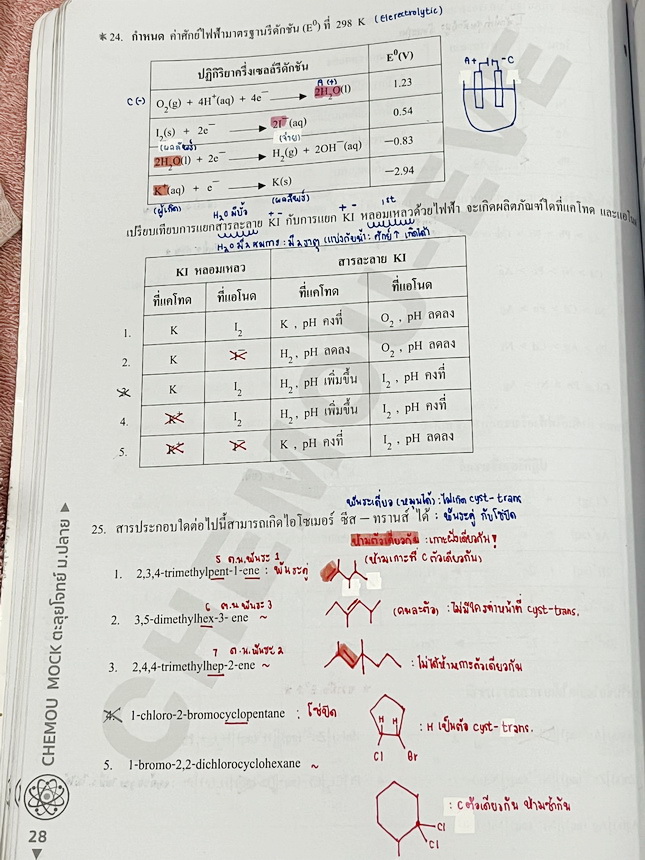 *24. กำหนด ค่าศักย์ไฟฟ้ามาตรฐานรีดักชัน (E⁰) ที่ 298 K (Elerectrolytic)
ปฏิกิริยาครึ่งเซลล์รีดักชัน E⁰(V)
C(-) A(+)
O₂(g) + 4H⁺(aq) + 4e⁻ → 2H₂O(l) 1.23
I₂(s) + 2e⁻ → 2I⁻(aq) 0.54
2H₂O(l) + 2e⁻ → H₂(g) + 2OH⁻(aq) −0.83
K⁺(aq) + e⁻ → K(s) −2.94
A+ -C
H₂O มีขั้ว + - + - 1st
เปรียบเทียบการแยกสารละลาย KI กับการแยก KI หลอมเหลวด้วยไฟฟ้า จะเกิดผลิตภัณฑ์ใดที่แคโทด และแอโน
KI หลอมเหลว สารละลาย KI
ที่แคโทด ที่แอโนด ที่แคโทด ที่แอโนด
1. K I₂ K , pH คงที่ O₂ , pH ลดลง
2. K H₂ , pH ลดลง O₂ , pH ลดลง
K I₂ H₂ , pH เพิ่มขึ้น I₂ , pH คงที่
4. I₂ H₂ , pH เพิ่มขึ้น I₂ , pH คงที่
5. K , pH คงที่ I₂ , pH ลดลง
พันธะเดี่ยว (หมุนได้) : ไม่เกิด cyst-trans
25. สารประกอบใดต่อไปนี้สามารถเกิดไอโซเมอร์ ซีส – ทรานส์ ได้ : พันธะคู่ กับโซ่ปิด
ห้ามตัวเดียวกัน : เกาะฝั่งเดียวกัน!
(ห้ามเกาะที่ C ตัวเดียวกัน)
5 ต.น.พันธะ 1
1. 2,3,4-trimethylpent-1-ene : พันธะคู่
6 ต.น.พันธะ 3
2. 3,5-dimethylhex-3- ene ~ (คนละตัว) : ไม่มีใครทำหน้าที่ cyst-trans.
7 ต.น.พันธะ 2
3. 2,4,4-trimethylhep-2-ene ~ : ไม่ได้ห้ามเกาะตัวเดียวกัน
1-chloro-2-bromocyclopentane : โซ่ปิด
H H
Cl Br
: H เป็นตัว cyst-trans.
5. 1-bromo-2,2-dichlorocyclohexane ~
Cl
Cl
: C ตัวเดียวกัน ห้ามซ้ำกัน
CHEMOU MOCK ตะลุยโจทย์ ม.ปลาย
28
CHEMOU-EVE